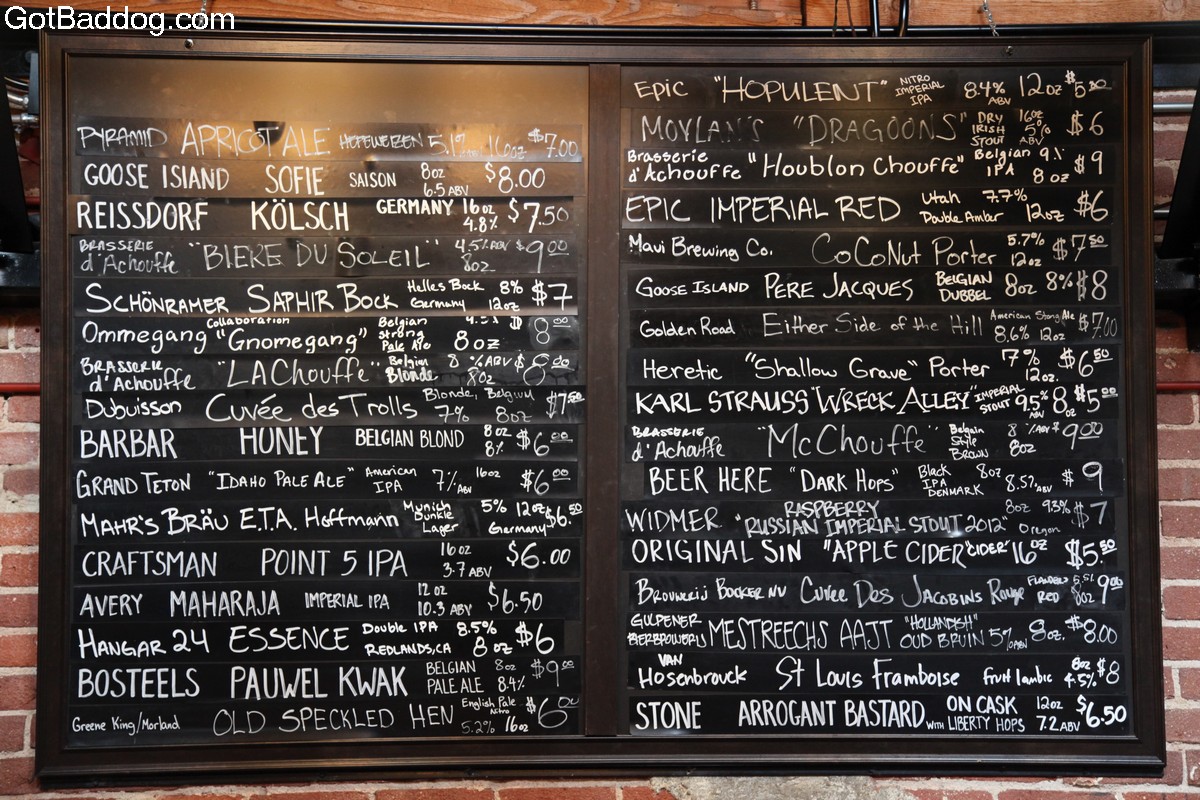 GotBaddog.com
PYRAMID APRICOT ALE HEFEWEIZEN 5.1% 16oz $7.00
GOOSE ISLAND SOFIE SAISON 8oz 6.5 ABV $8.00
REISSDORF KÖLSCH GERMANY 16oz 4.8% $7.50
BRASSERIE d'Achouffe "BIERE DU SOLEIL" 4.5% ABV 8oz $9.00
SCHÖNRAMER SAPHIR BOCK Helles Bock Germany 8% 12oz $7
Ommegang Collaboration "Gnomegang" Belgian Strong Pale Ale 8oz $8.00
BRASSERIE d'Achouffe "LAChouffe" Belgian Blonde 8% ABV 8oz $8.00
Dubuisson Cuvée des Trolls Blonde, Belgium 7% 8oz $7.50
BARBAR HONEY BELGIAN BLOND 8oz 8% $6.00
GRAND TETON "IDAHO PALE ALE" American IPA 7% ABV 16oz $6.00
MAHR'S BRÄU E.T.A. Hoffmann Munich Dunkle Lager 5% 12oz Germany $6.50
CRAFTSMAN POINT 5 IPA 16oz 3.7 ABV $6.00
AVERY MAHARAJA IMPERIAL IPA 12oz 10.3 ABV $6.50
HANGAR 24 ESSENCE Double IPA REDLANDS, CA 8.5% 8oz $6
BOSTEELS PAUWEL KWAK BELGIAN PALE ALE 8oz 8.4% $9.00
Greene King/Morland OLD SPECKLED HEN English Pale Nitro 5.2% 16oz $6.00
EPIC "HOPULENT" NITRO IMPERIAL IPA 8.4% ABV 12oz $5.50
MOYLAN'S "DRAGOONS" DRY IRISH STOUT 16oz 5% ABV $6
Brasserie d'Achouffe "Houblon Chouffe" Belgian IPA 9% 8oz $9
EPIC IMPERIAL RED Utah 7.7% Double Amber 12oz $6
Maui Brewing Co. CoCoNut Porter 5.7% 12oz $7.50
GOOSE ISLAND PERE JACQUES BELGIAN DUBBEL 8oz 8% $8
Golden Road Either Side of the Hill American Stong Ale 8.6% 12oz $7.00
Heretic "Shallow Grave" Porter 7% 12oz. $6.50
KARL STRAUSS "WRECK ALLEY" IMPERIAL STOUT 9.5% ABV 8oz $5.00
BRASSERIE d'Achouffe "McChouffe" Belgain Style BROWN 8% ABV 8oz $9.00
BEER HERE "DARK HOPS" Black IPA DENMARK 8oz 8.5% ABV $9
WIDMER RASPBERRY "RUSSIAN IMPERIAL STOUT 2012" 8oz 9.3% Oregon $7
ORIGINAL SIN "APPLE CIDER" "CIDER" 16oz $5.50
BROUWERIJ BOCKER NV Cuvee Des Jacobins Rouge FLANDERS RED 5.5% 8oz $9.00
GULPENER BIERBROUWERIJ MESTREECHS AAJT "HOLLANDISH" OUD BRUIN 5% ABV 8oz. $8.00
VAN Hosenbrouck St Louis Framboise Fruit lambic 8oz 4.5% $8
STONE ARROGANT BASTARD ON CASK WITH LIBERTY HOPS 12oz 7.2 ABV $6.50